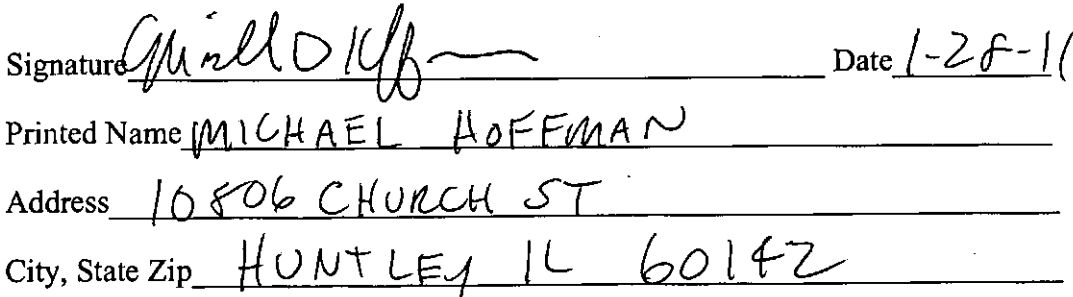 Signature Date 1-28-11
Printed Name MICHAEL HOFFMAN
Address 10806 CHURCH ST
City, State Zip HUNTLEY IL 60142